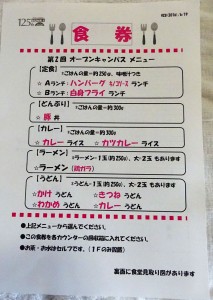 125
食 券
第２回 オープンキャンパス メニュー
【定食】 ※ごはんの量＝約250g、味噌汁つき
☆ Aランチ：ハンバーグ
☆ Bランチ：白身フライ ランチ
【どんぶり】 ※ごはんの量＝約300g
☆ 豚 丼
【カレー】 ※ごはんの量＝約300g
☆ カレー ライス ☆ カツカレー ライス
【ラーメン】 ※ラーメン・1玉(約250g)、大・2玉もあります
☆ラーメン (鶏ガラ)
【うどん】 ※うどん・1玉(約250g)、大・2玉もあります
☆かけ うどん ☆きつね うどん
☆わかめ うどん ☆カレー うどん
●上記メニューから選んでください。
●この食券を各カウンターの回収箱に入れてください。
●お茶・お水はセルフです。（１Ｆのみ設置）
裏面に食堂見取り図があります